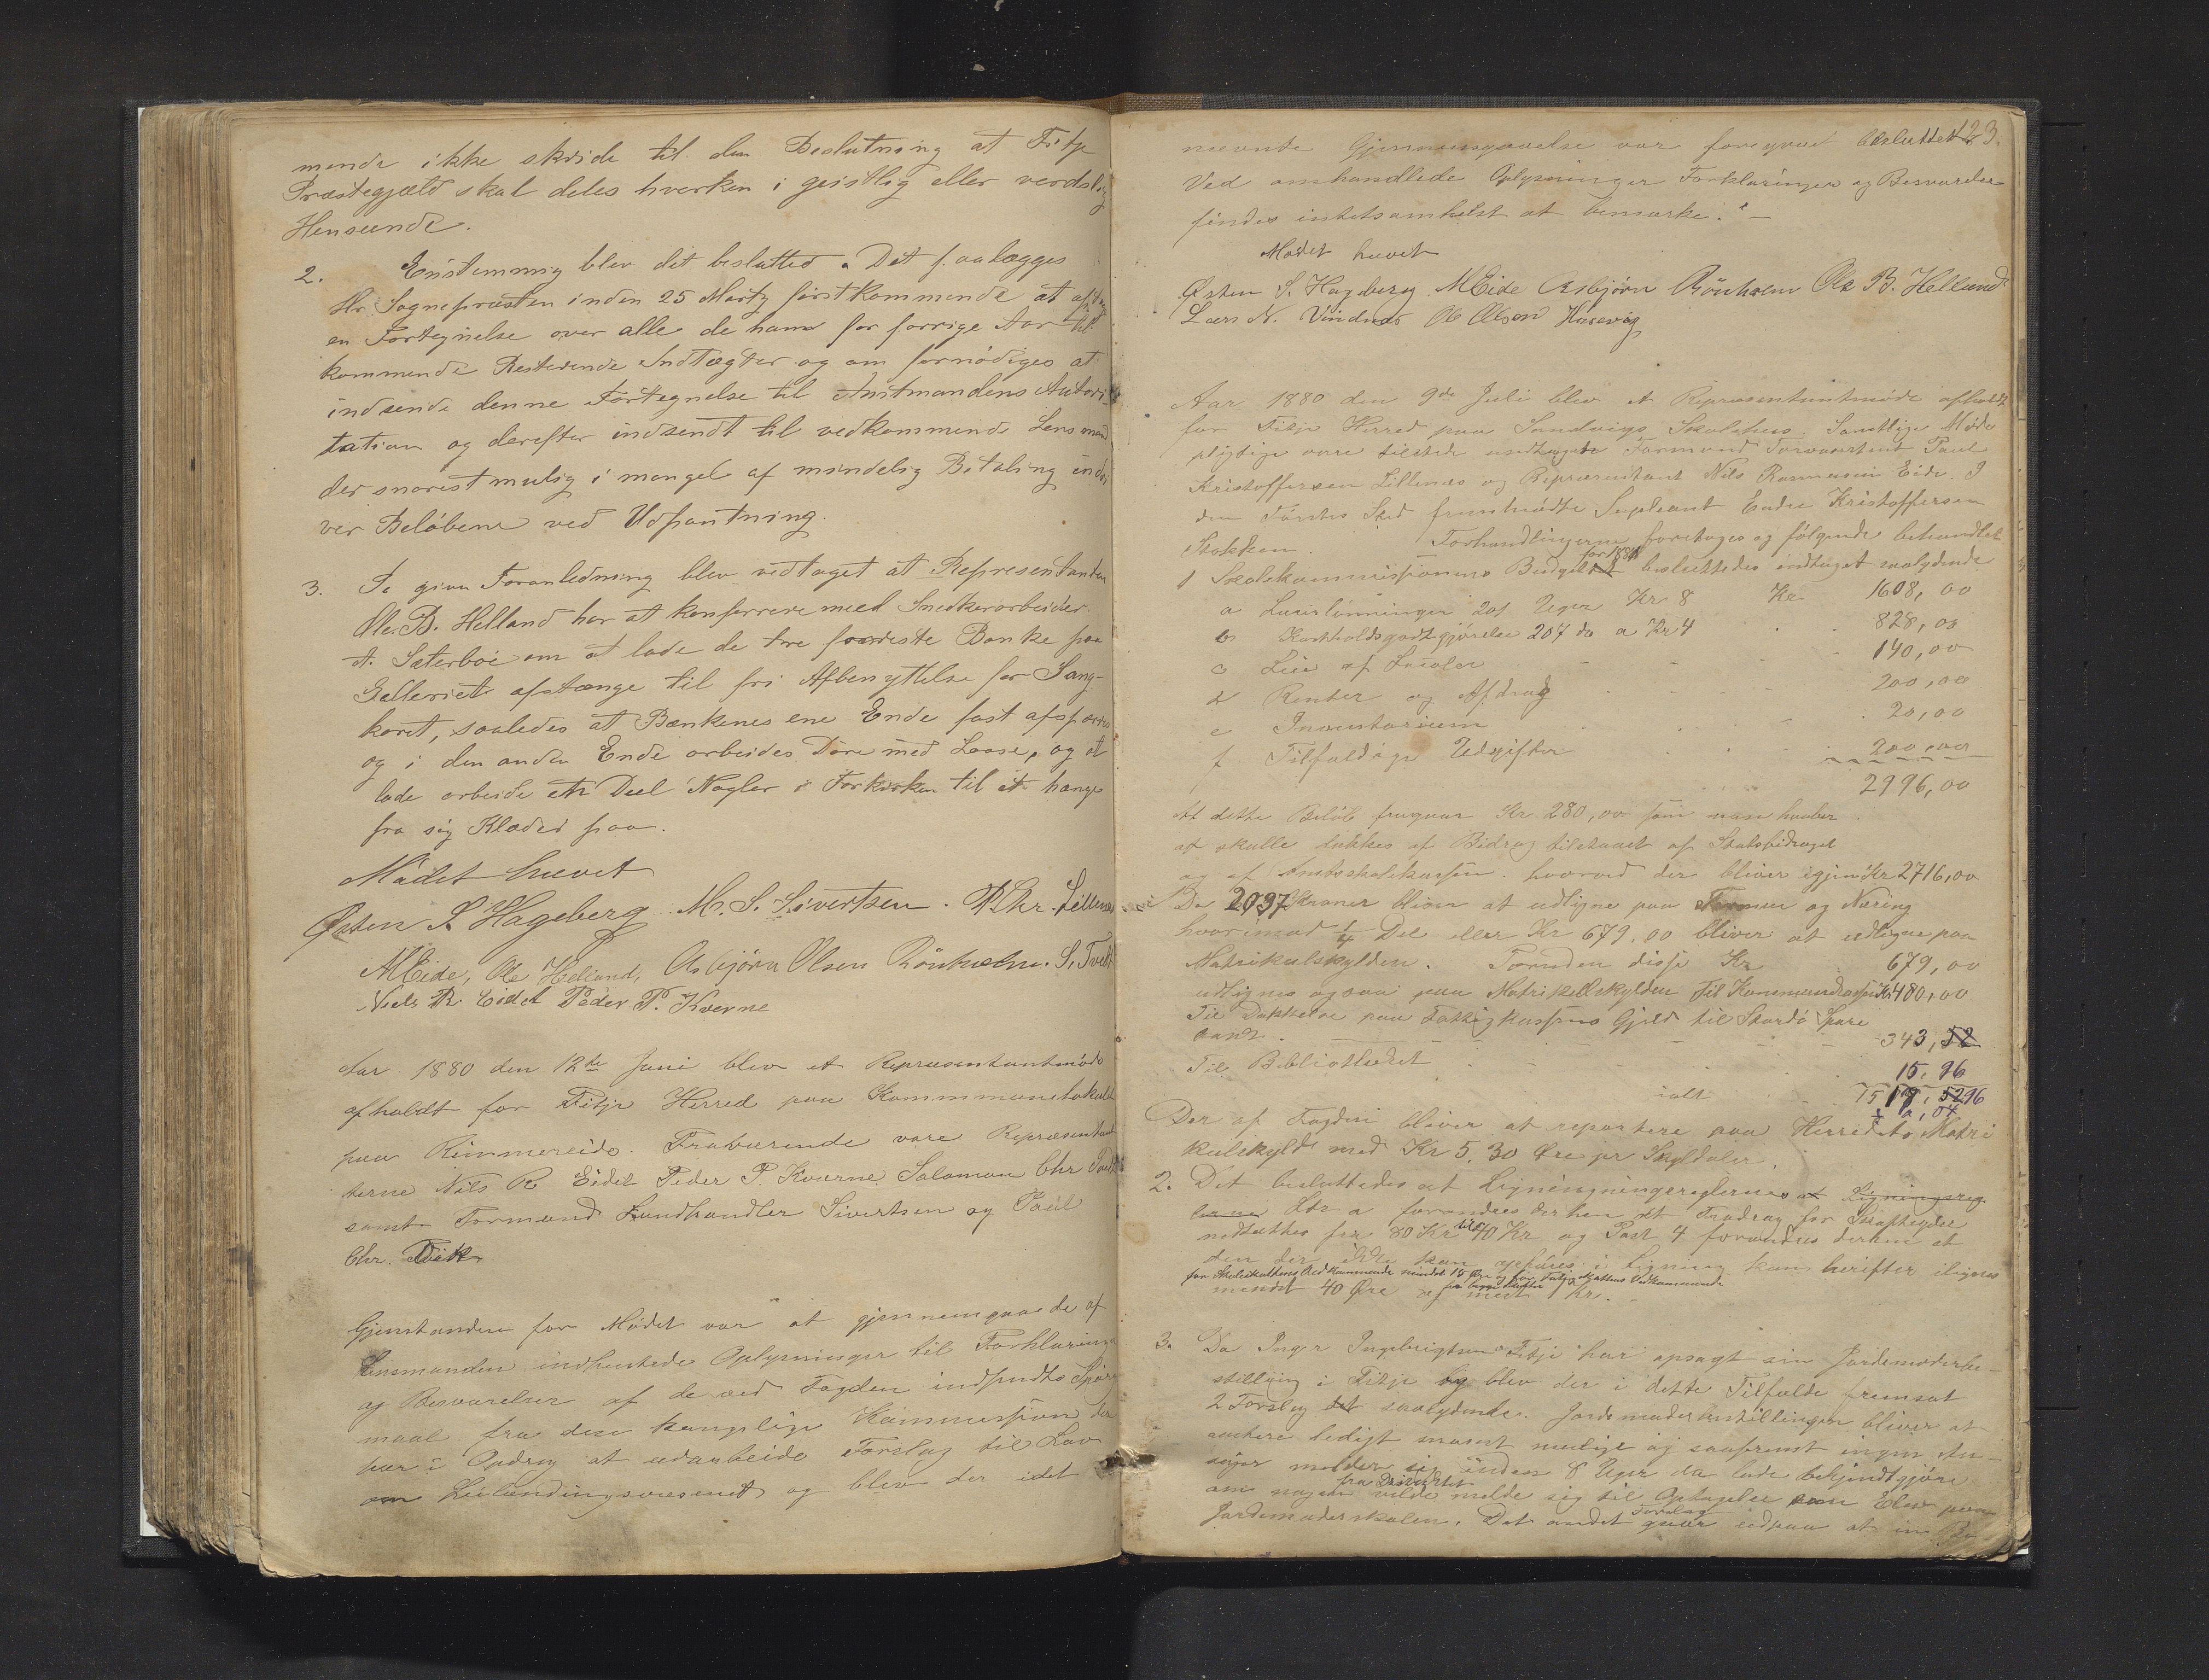 mende ikke skride til den Beslutning at Fitje
Præstegjæld skal deles hverken i geistlig eller verdslig
Henseende.
2. Enstemmig blev det beslutted. Det p.aalægges
Hr. Sognepræsten inden 25 Martz förstkommende at
en Fortegnelse over alle de ham for forrige Aar til
kommende Resterende Indtægter og om fornödiges at
indsende denne Fortegnelse til Amtmandens Autori-
tation og derefter indsendt til vedkommende Lensmand
der snarest mulig i mangel af mindelig Betaling inddri
ver Belöbene ved Udpantning.
3. I given Foranledning blev vedtaget at Representanten
Ole. B. Helland har at konferrere med Snedkerarbeider
A. Sæterböe om at lade de tre forreste Bænke paa
Galleriet afstænge til fri Afbenyttelse for Sang-
koret, saaledes at Bænkenes ene Ende fast afsperres
og i den anden Ende arbeides Döre med Laase, og at
lade arbeide en Deel Nagler i Forkirken til at hænge
fra sig Klæder paa.
Mödet hævet
Østen S Hageberg M. S. Sivertsen. P. Chr. Lillenes
M Eide, Ole Helland, Asbjörn Olsen Rönholm. S. Tveit
Niels R. Eidet Peder P. Kverne
Aar 1880 den 12te Juni blev et Repræsentantmöde
afholdt for Fitje Herred paa Kommunelokalet
paa Rimmereide. Fraværende vare Repræsentan
terne Nils R Eidet Peder P. Kværne Salamon Chr Tveit
samt Formænd Landhandler Sivertsen og Paul
Chr.
Gjenstanden for Mödet var at gjennemgaa de af
Lensmanden indhentede Oplysninger til Forklaringer
og Besvarelser af de ved Fogden indsendte Spörgs
maal fra den kongelige Kommission der
har i Opdrag at udarbeide Forslag til Lov
om Leilændingsvæsenet og blev der idet
123.
nævnte Gjennemgaaelse var foregaaet besluttet
Ved omhandlede Oplysninger Forklaringer og Besvarelse
findes intetsomhelst at bemærke." —
Mödet hævet
Østen S. Hageberg M Eide Asbjörn Rönholm Ole B. Helland
Lars N. Vindnes Ole Olson Havevig
Aar 1880 den 9de Juli blev et Repræsentantmöde afholdt
for Fitje Herred paa Sandvigs Skolehus. Samtlige Möde
pligtige vare tilstede undtagen Formænd Forvaerende Paul
Kristoffersen Lillenes og Repræsentant Nils Rasmusen Eide. I
den Förstes Sted fremmödte Supleant Endre Kristoffersen
Stokken. Forhandlingerne foretoges og fölgende behandlet
for 1881
1 Skolekommissionens Budget besluttedes indtaget saalydende
a Lærerlönninger 201 Uger Kr 8 Kr. 1608,00
b Kostholdsgodtgjörelse 207 do a Kr 4 828,00
c Leie af Lokaler 140,00
d Renter og Afdrag 200,00
e Inventarium 20,00
f Tilfældige Udgifter 200,00
2996,00
At dette Belöb fragaar Kr. 280,00 som man haaber
at skulle lukkes af Bidrag tilstaaet af Statsbidraget
og af Amtsskolekassen. hvorved der bliver igjen Kr 2716,00
De 2037 Kroner bliver at udligne paa Formue og Næring
hvorimod 1/4 Del eller Kr 679,00 bliver at udligne paa
Matrikulskylden. Foruden disse Kr 679,00
udlignes ogsaa paa Matrikelskylden Til Kommunekassen Kr 480,00
Til Dækkelse paa Fattigkassens Gjæld til Stordö Spare
bank. 343,52
Til Bibliotheket 15,96
ialt
Der af Fogden bliver at repartere paa Herredets Matri
kulskyld med Kr 5,30 Øre pr Skyldaler.
2. Det besluttedes at Ligningningsreglernes
Litr. a forandres derhen at Fradrag for Skatteyder
nedsættes fra 80 Kr til 40 Kr og Post 4 forandres derhen at
den der ikke kan opföres i Ligning kan herefter ilignes
for Skoleskattens Vedkommende mindst 15 Øre og for Fattigskattens Vedkommende
mindst 40 Øre
3. Da Inger Ingebrigtsen Fitje har opsagt sin Jordemoderbe-
stilling i Fitje blev der i dette Tilfælde fremsat
2 Forslag saalydende. Jordemoderbestillingen bliver at
avertere ledigt snarest muligt og saafremt ingen An-
söger melder sig inden 8 Uger da lade bekjendtgjöre
fra Distriktet
om nogen vilde melde sig til Optagelse som Elev paa
Jordemoderskolen. Det andet Forslag gaar udpaa at